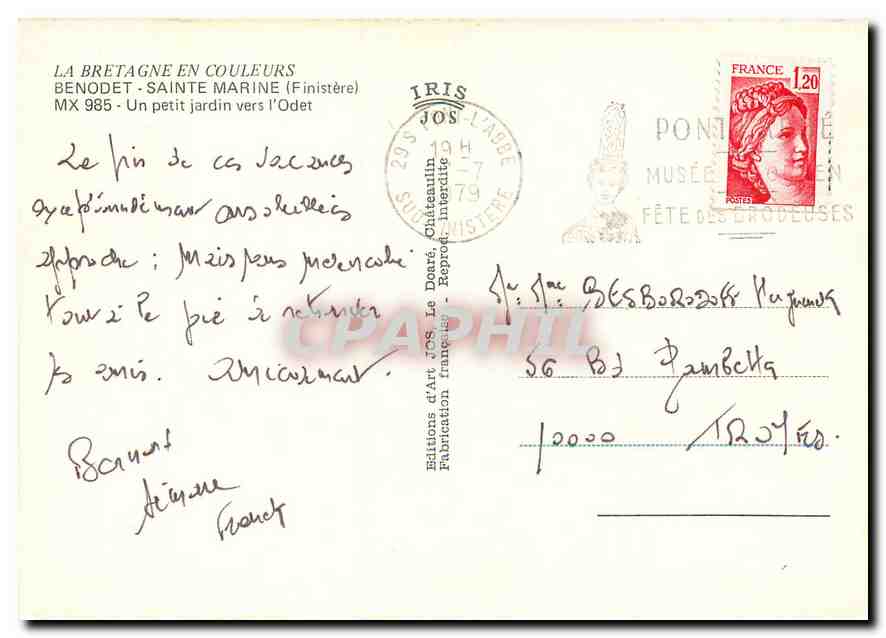 LA BRETAGNE EN COULEURS
BENODET - SAINTE MARINE (Finistère)
MX 985 - Un petit jardin vers l'Odet
IRIS
JOS
29 S PONT-L'ABBE
19 H
-7
1979
SUD FINISTERE
PONT L'ABBÉ
MUSÉE BIGOUDEN
FÊTE DES BRODEUSES
FRANCE
1,20
POSTES
Le fin de ces vacances
exceptionnellement ensoleillées
approche ; Mais pas mélancolie
tout à la joie de retrouver
les amis. Amicalement.
Bernard
Franck
Mr. Mme BESBORODOFF
56 Bd Gambetta
10000 TROYES.
Editions d'Art JOS, Le Doaré, Châteaulin
Fabrication française - Reprod. interdite
CPAPHIL